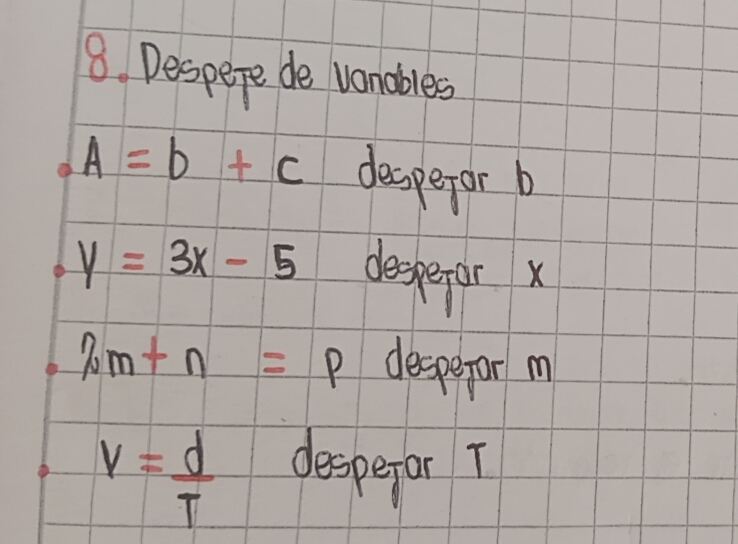 8. Despeje de variables
. A = b + c despejar b
. y = 3x - 5 despejar x
. 2m + n = p despejar m
. V = d/T despejar T